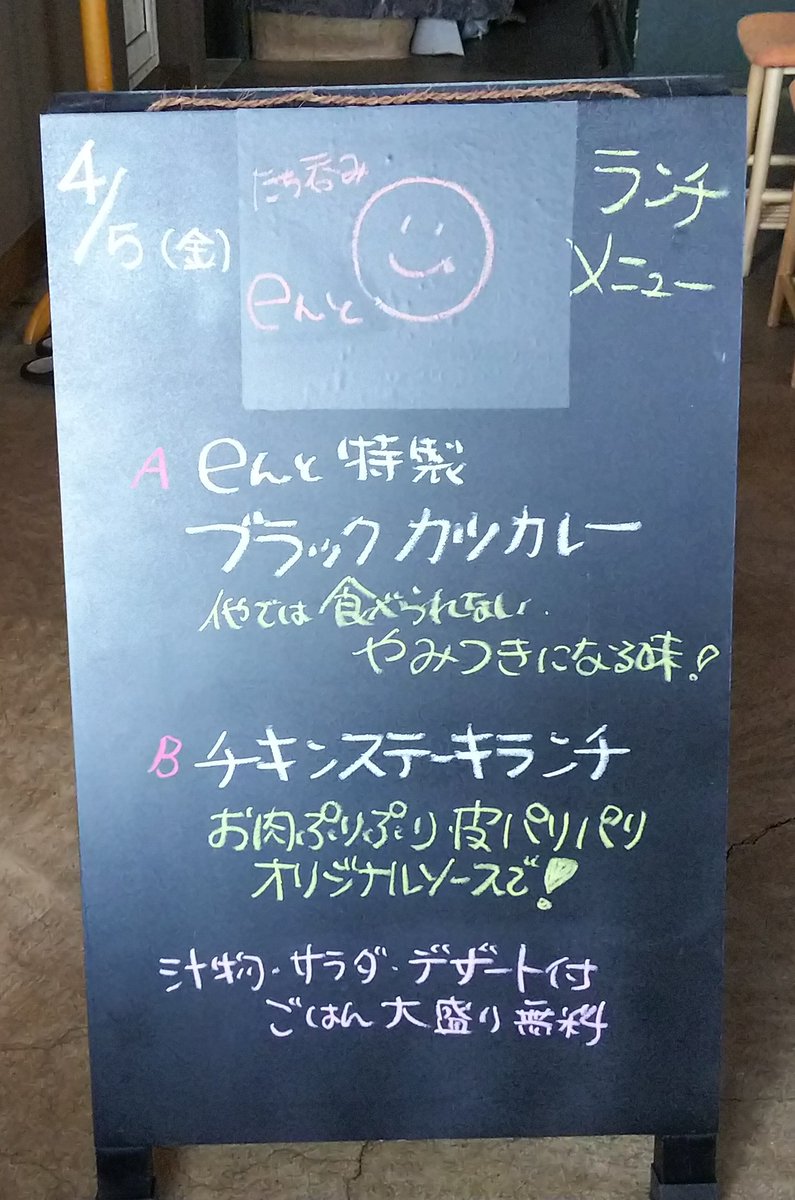 4/5(金)
たち呑み
eんと
ランチ
メニュー
A eんと特製
ブラックカツカレー
他では食べられない
やみつきになる味!
B チキンステーキランチ
お肉ぷりぷり皮パリパリ
オリジナルソースで!
汁物・サラダ・デザート付
ごはん大盛り無料